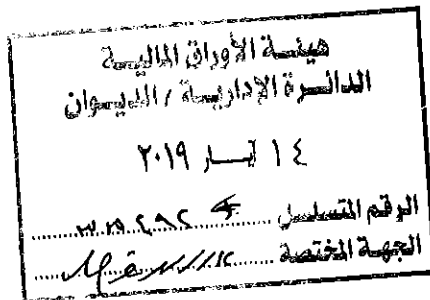 هيئة الأوراق المالية
الدائرة الإدارية / الديوان
١٤ آيار ٢٠١٩
الرقم المتسلسل
الجهة المختصة